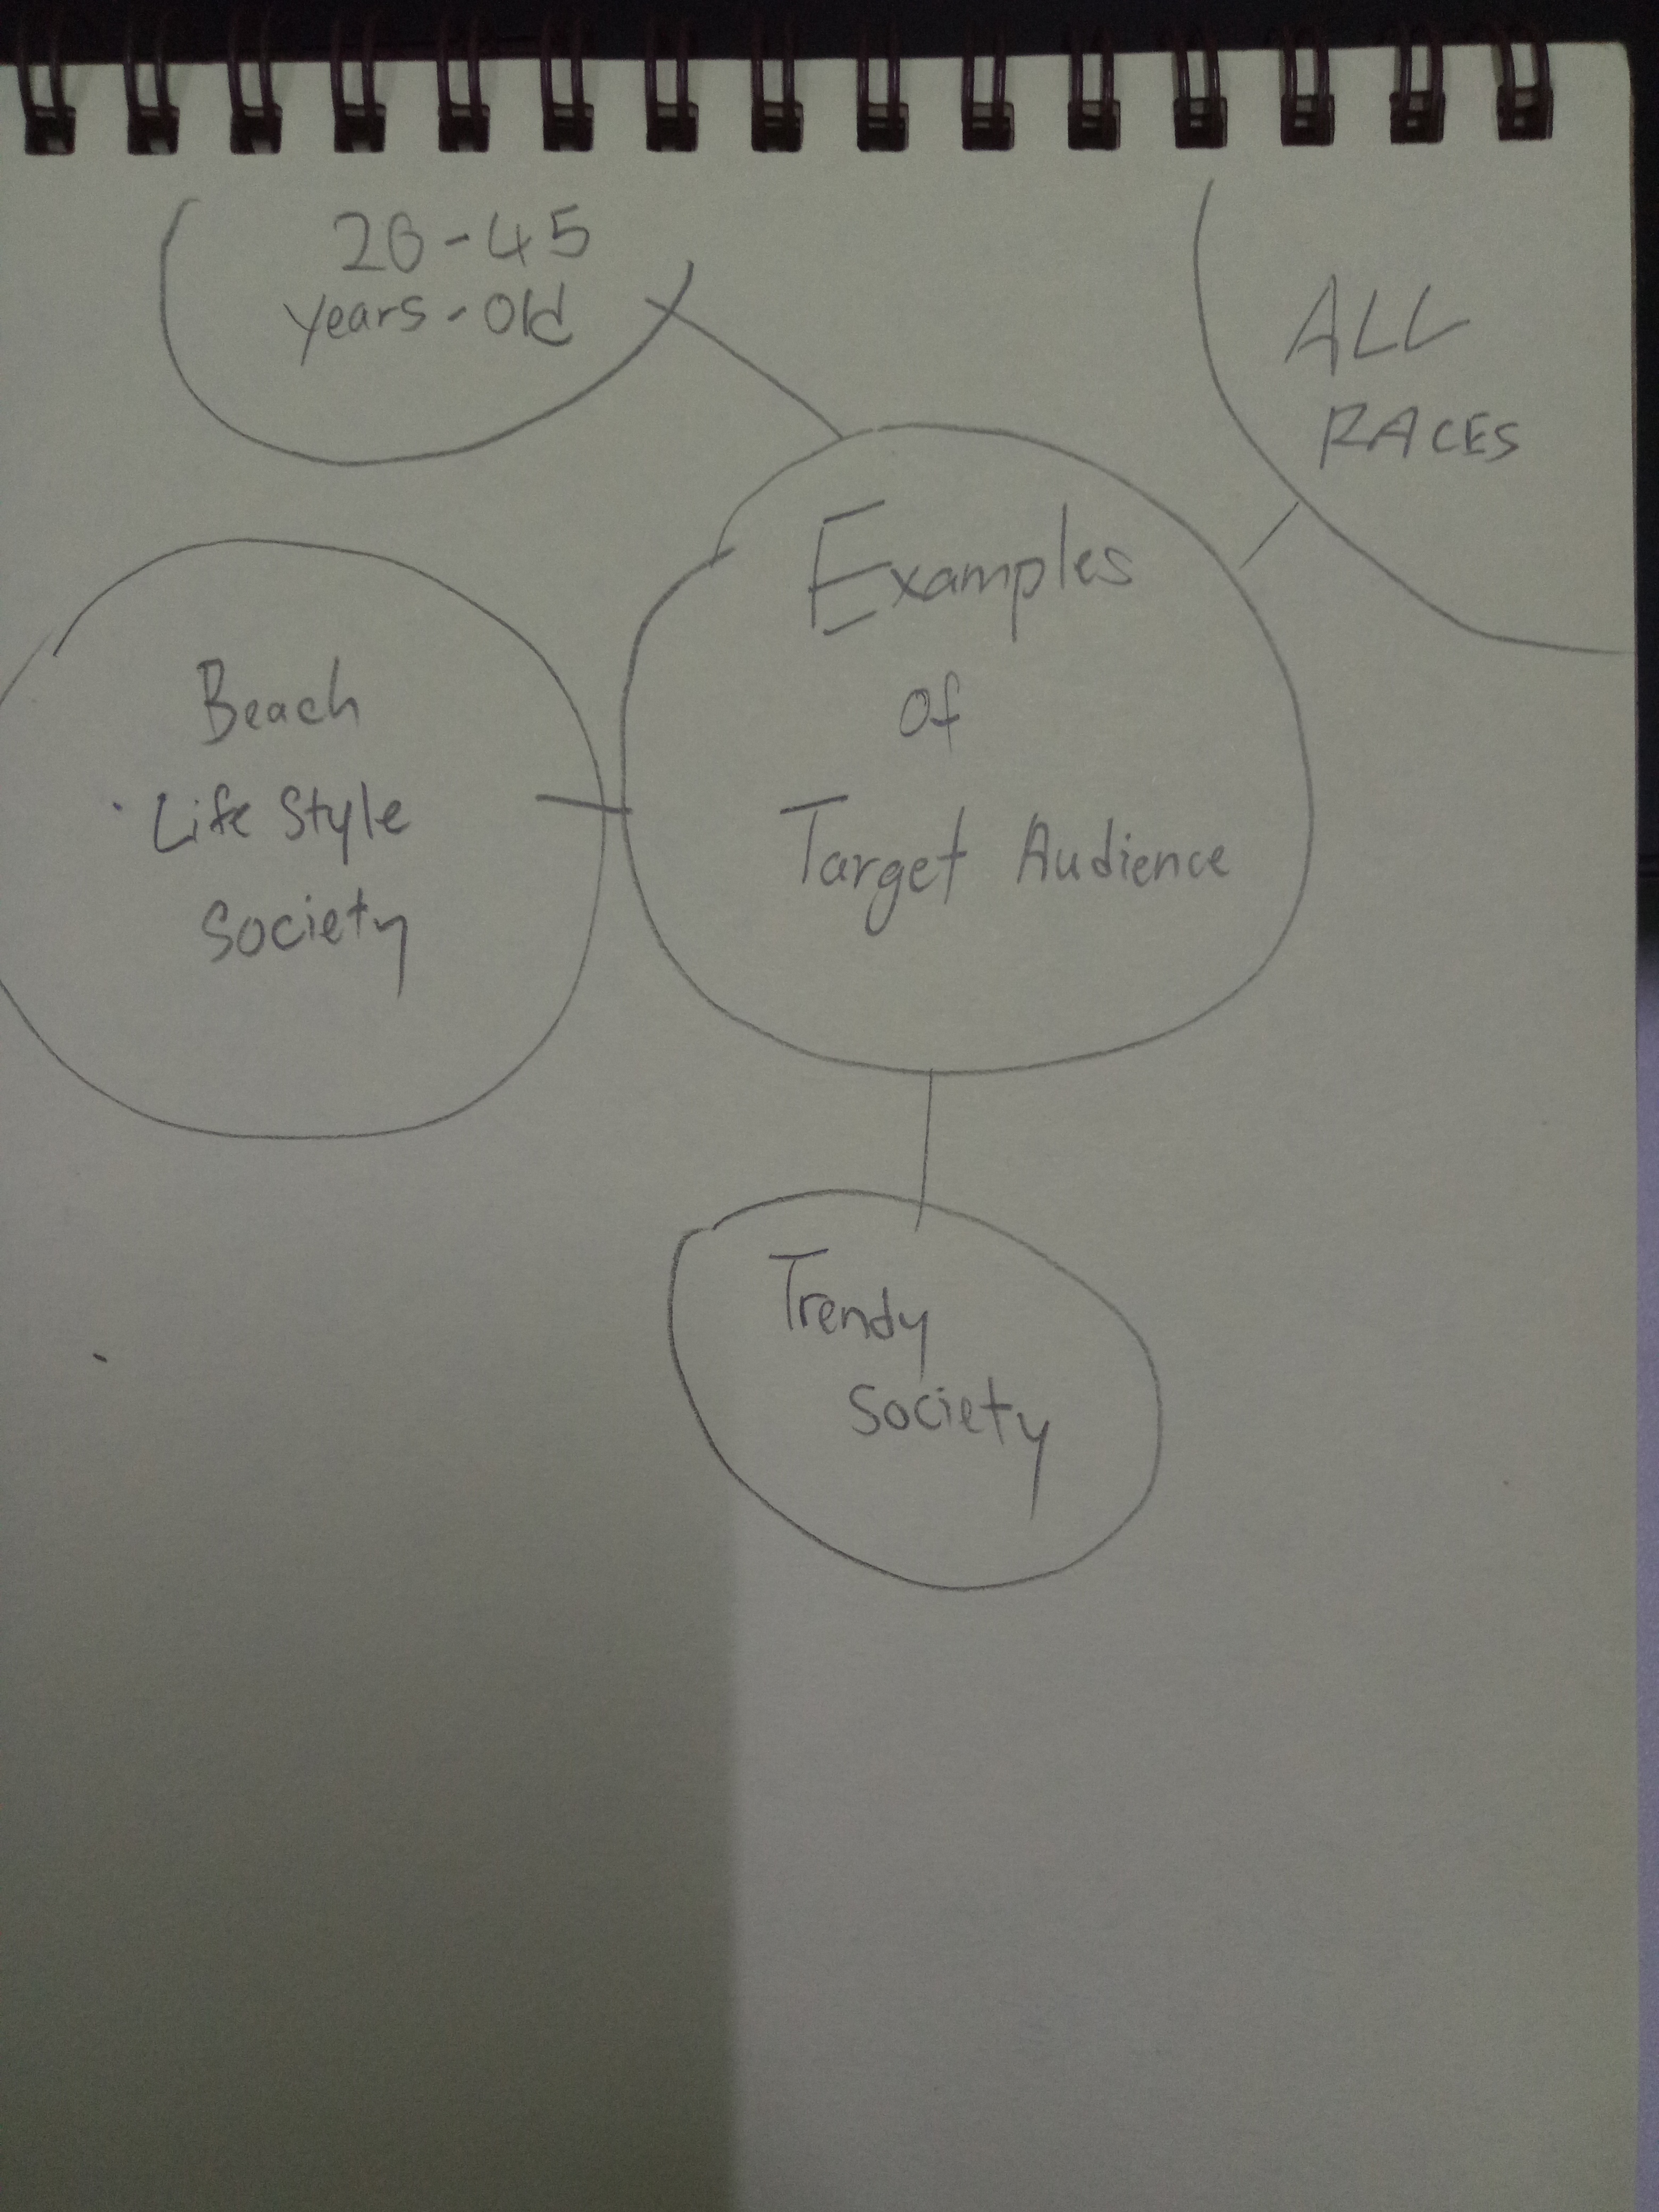 20-45
years-old
ALL
RACES
Examples
of
Target Audience
Beach
Life Style
Society
Trendy
Society